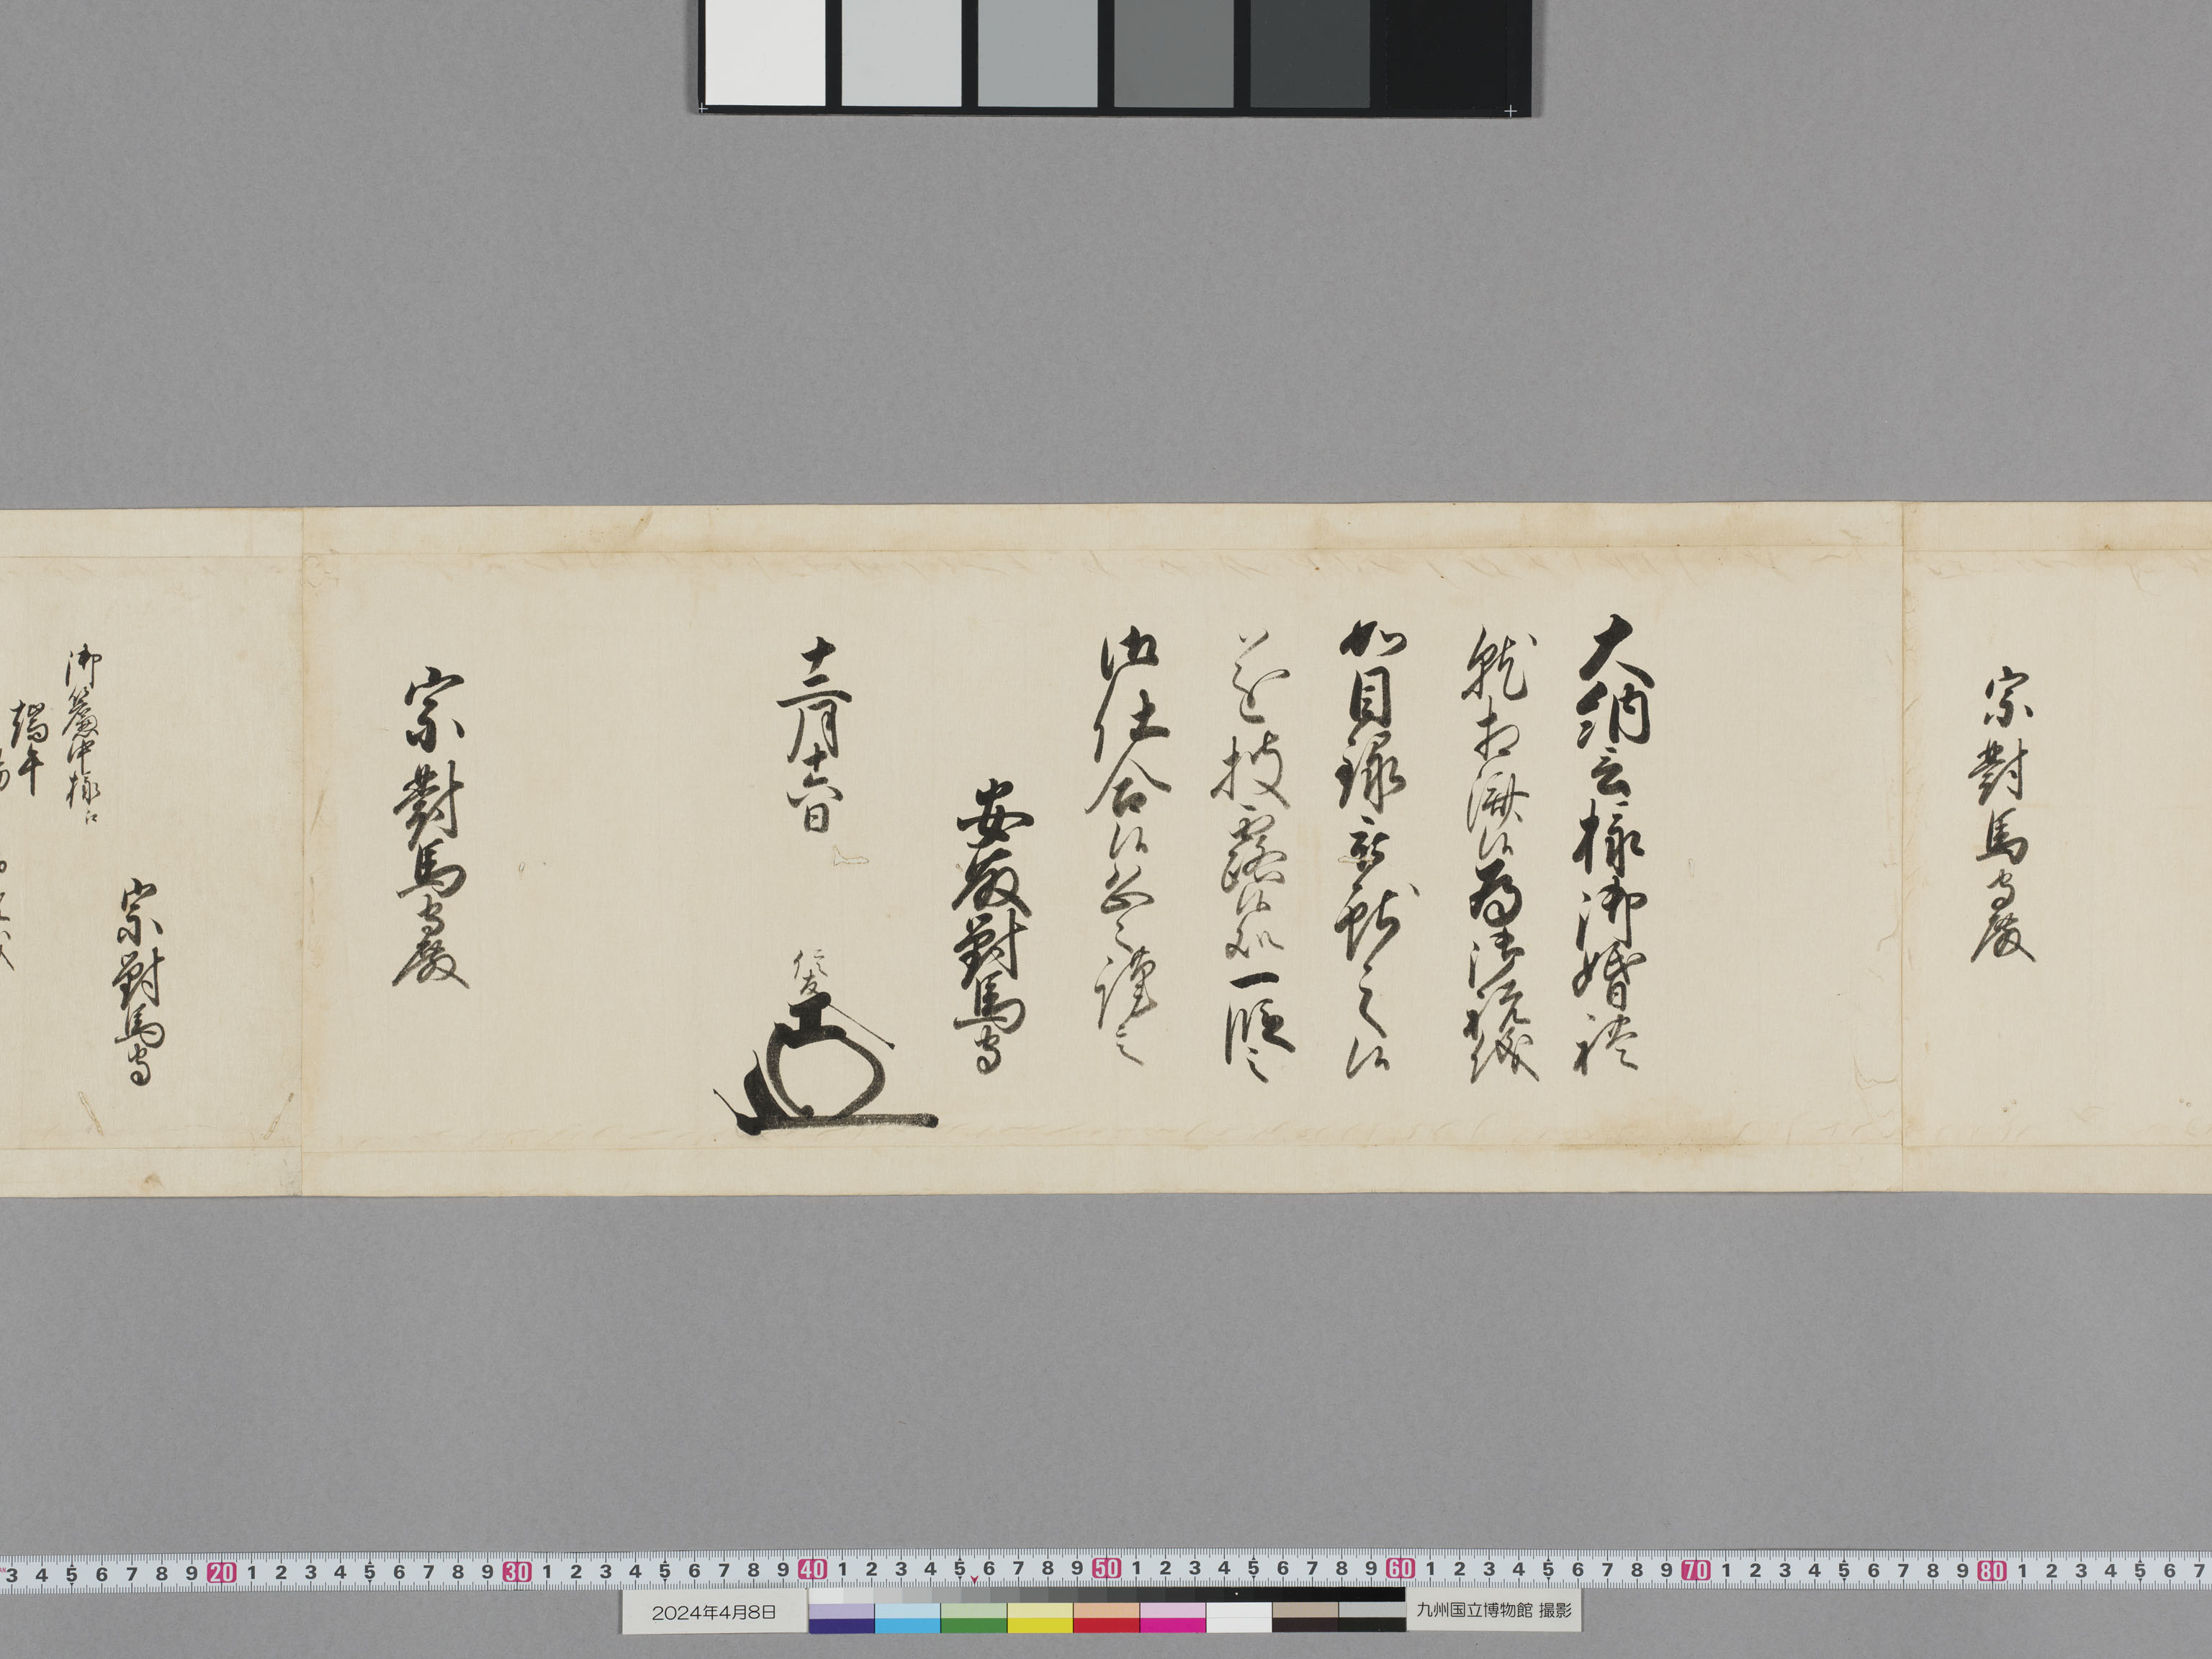 宗對馬守殿
大納言様御婚礼
就相済候為御祝儀
如目録被献之候
遂披露候処一段之
御仕合候恐々謹言
安藤對馬守
十二月十六日
信友
宗對馬守殿
宗對馬守
御簾中様江
端午
3 4 5 6 7 8 9 20 1 2 3 4 5 6 7 8 9 30 1 2 3 4 5 6 7 8 9 40 1 2 3 4 5 6 7 8 9 50 1 2 3 4 5 6 7 8 9 60 1 2 3 4 5 6 7 8 9 70 1 2 3 4 5 6 7 8 9 80 1 2 3 4 5 6 7
2024年4月8日
九州国立博物館 撮影